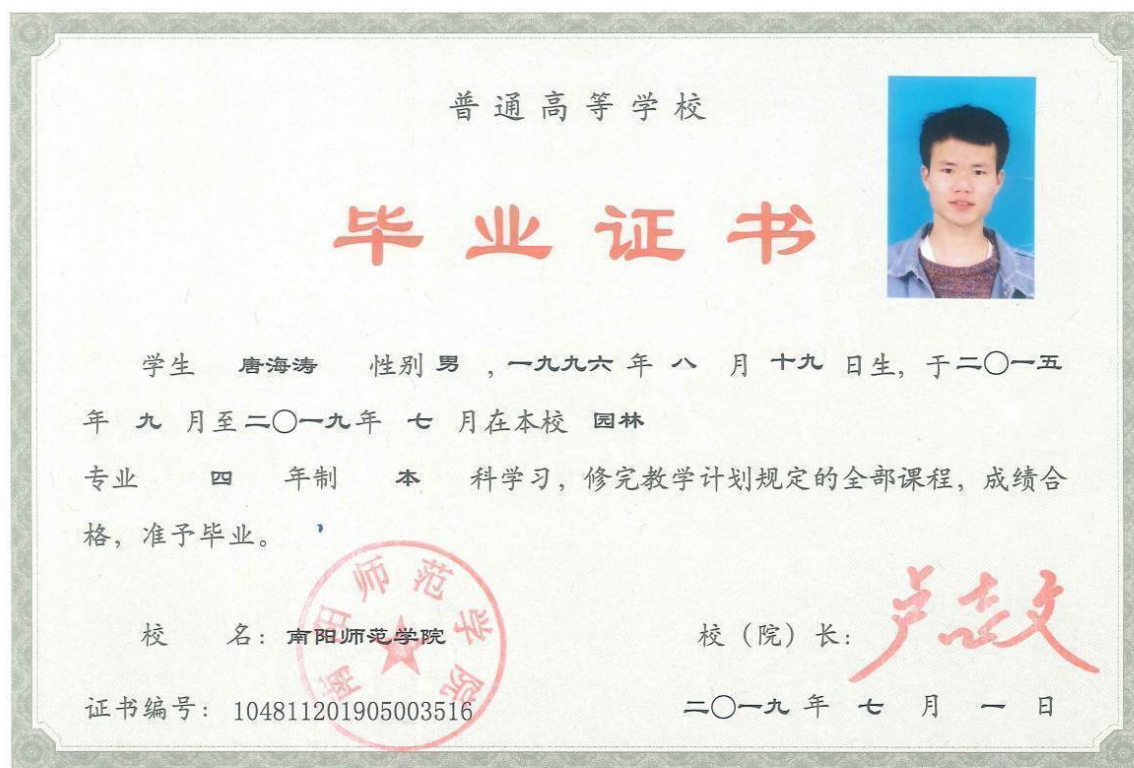 普通高等学校
毕业证书
学生 唐海涛 性别 男 ,一九九六 年 八 月 十九 日生,于二〇一五
年 九 月至二〇一九年 七 月在本校 园林
专业 四 年制 本 科学习,修完教学计划规定的全部课程,成绩合
格,准予毕业。
校 名:南阳师范学院
校(院)长:卢志文
南阳师范学院
证书编号:104811201905003516
二〇一九 年 七 月 一 日